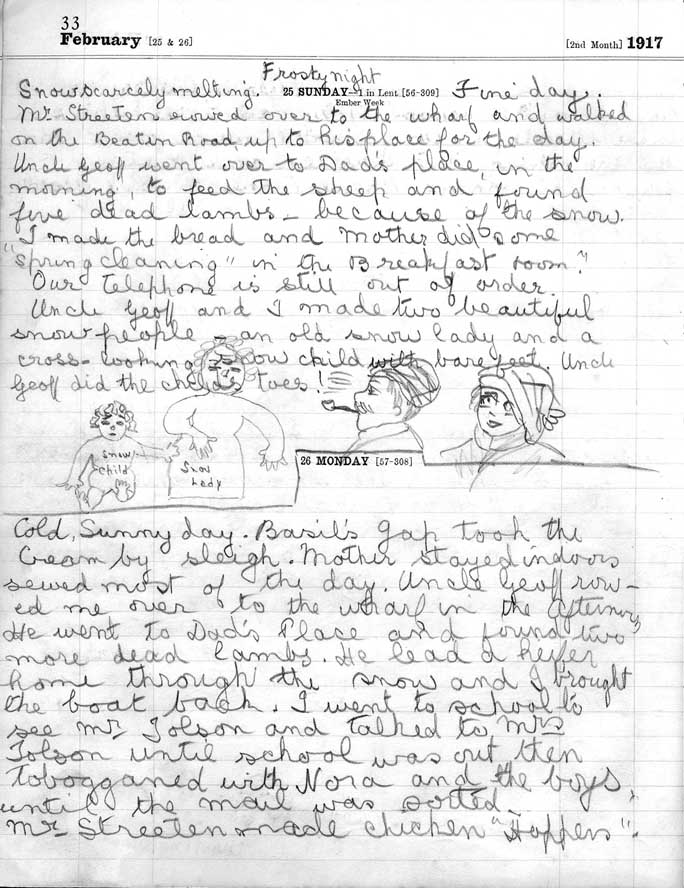 33
February [25 & 26]
[2nd Month] 1917
Frosty night
Snow scarcely melting. 25 SUNDAY—1 in Lent [56-309] Fine day.
Ember Week
Mr. Streeten rowed over to the wharf and walked
on the Beaten Road up to his place for the day.
Uncle Geoff went over to Dad's place, in the
morning, to feed the sheep and found
five dead lambs - because of the snow.
I made the bread and Mother did some
"spring cleaning" in the Breakfast room."
Our telephone is still out of order.
Uncle Geoff and I made two beautiful
snow people - an old snow lady and a
cross-looking snow child with bare feet. Uncle
Geoff did the child's toes!
Snow
child
Snow
Lady
26 MONDAY [57-308]
Cold, Sunny day. Basil's Jap took the
Cream by sleigh. Mother stayed indoors
sewed most of the day. Uncle Geoff row-
ed me over to the wharf in the afternoon,
He went to Dad's Place and found two
more dead lambs. He lead a heifer
home through the snow and I brought
the boat back. I went to school to
see Mr Tolson and talked to Mrs
Tolson until school was out then
Tobogganed with Nora and the boys,
until the mail was sorted.
Mr Streeten made chicken "Hoppers".